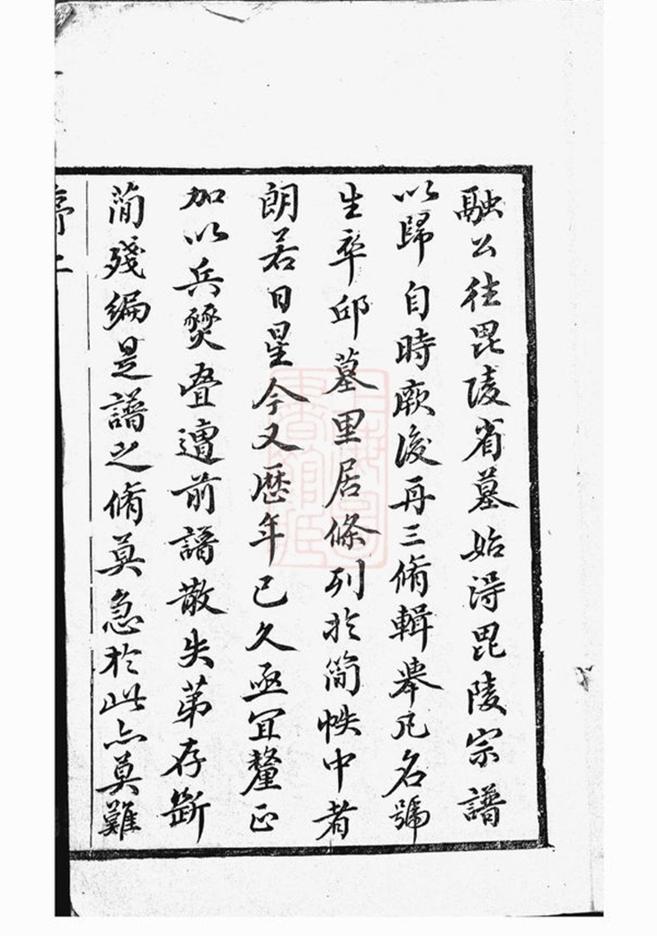 融公往毘陵省墓始得毘陵宗譜
以歸自時厥後再三脩輯舉凡名號
生卒邱墓里居條列於简帙中者
朗若日星今又歴年已久亟冝釐正
加以兵燹叠遭前譜散失苐存斷
蕳殘编是譜之脩莫急於此亦莫難
序二